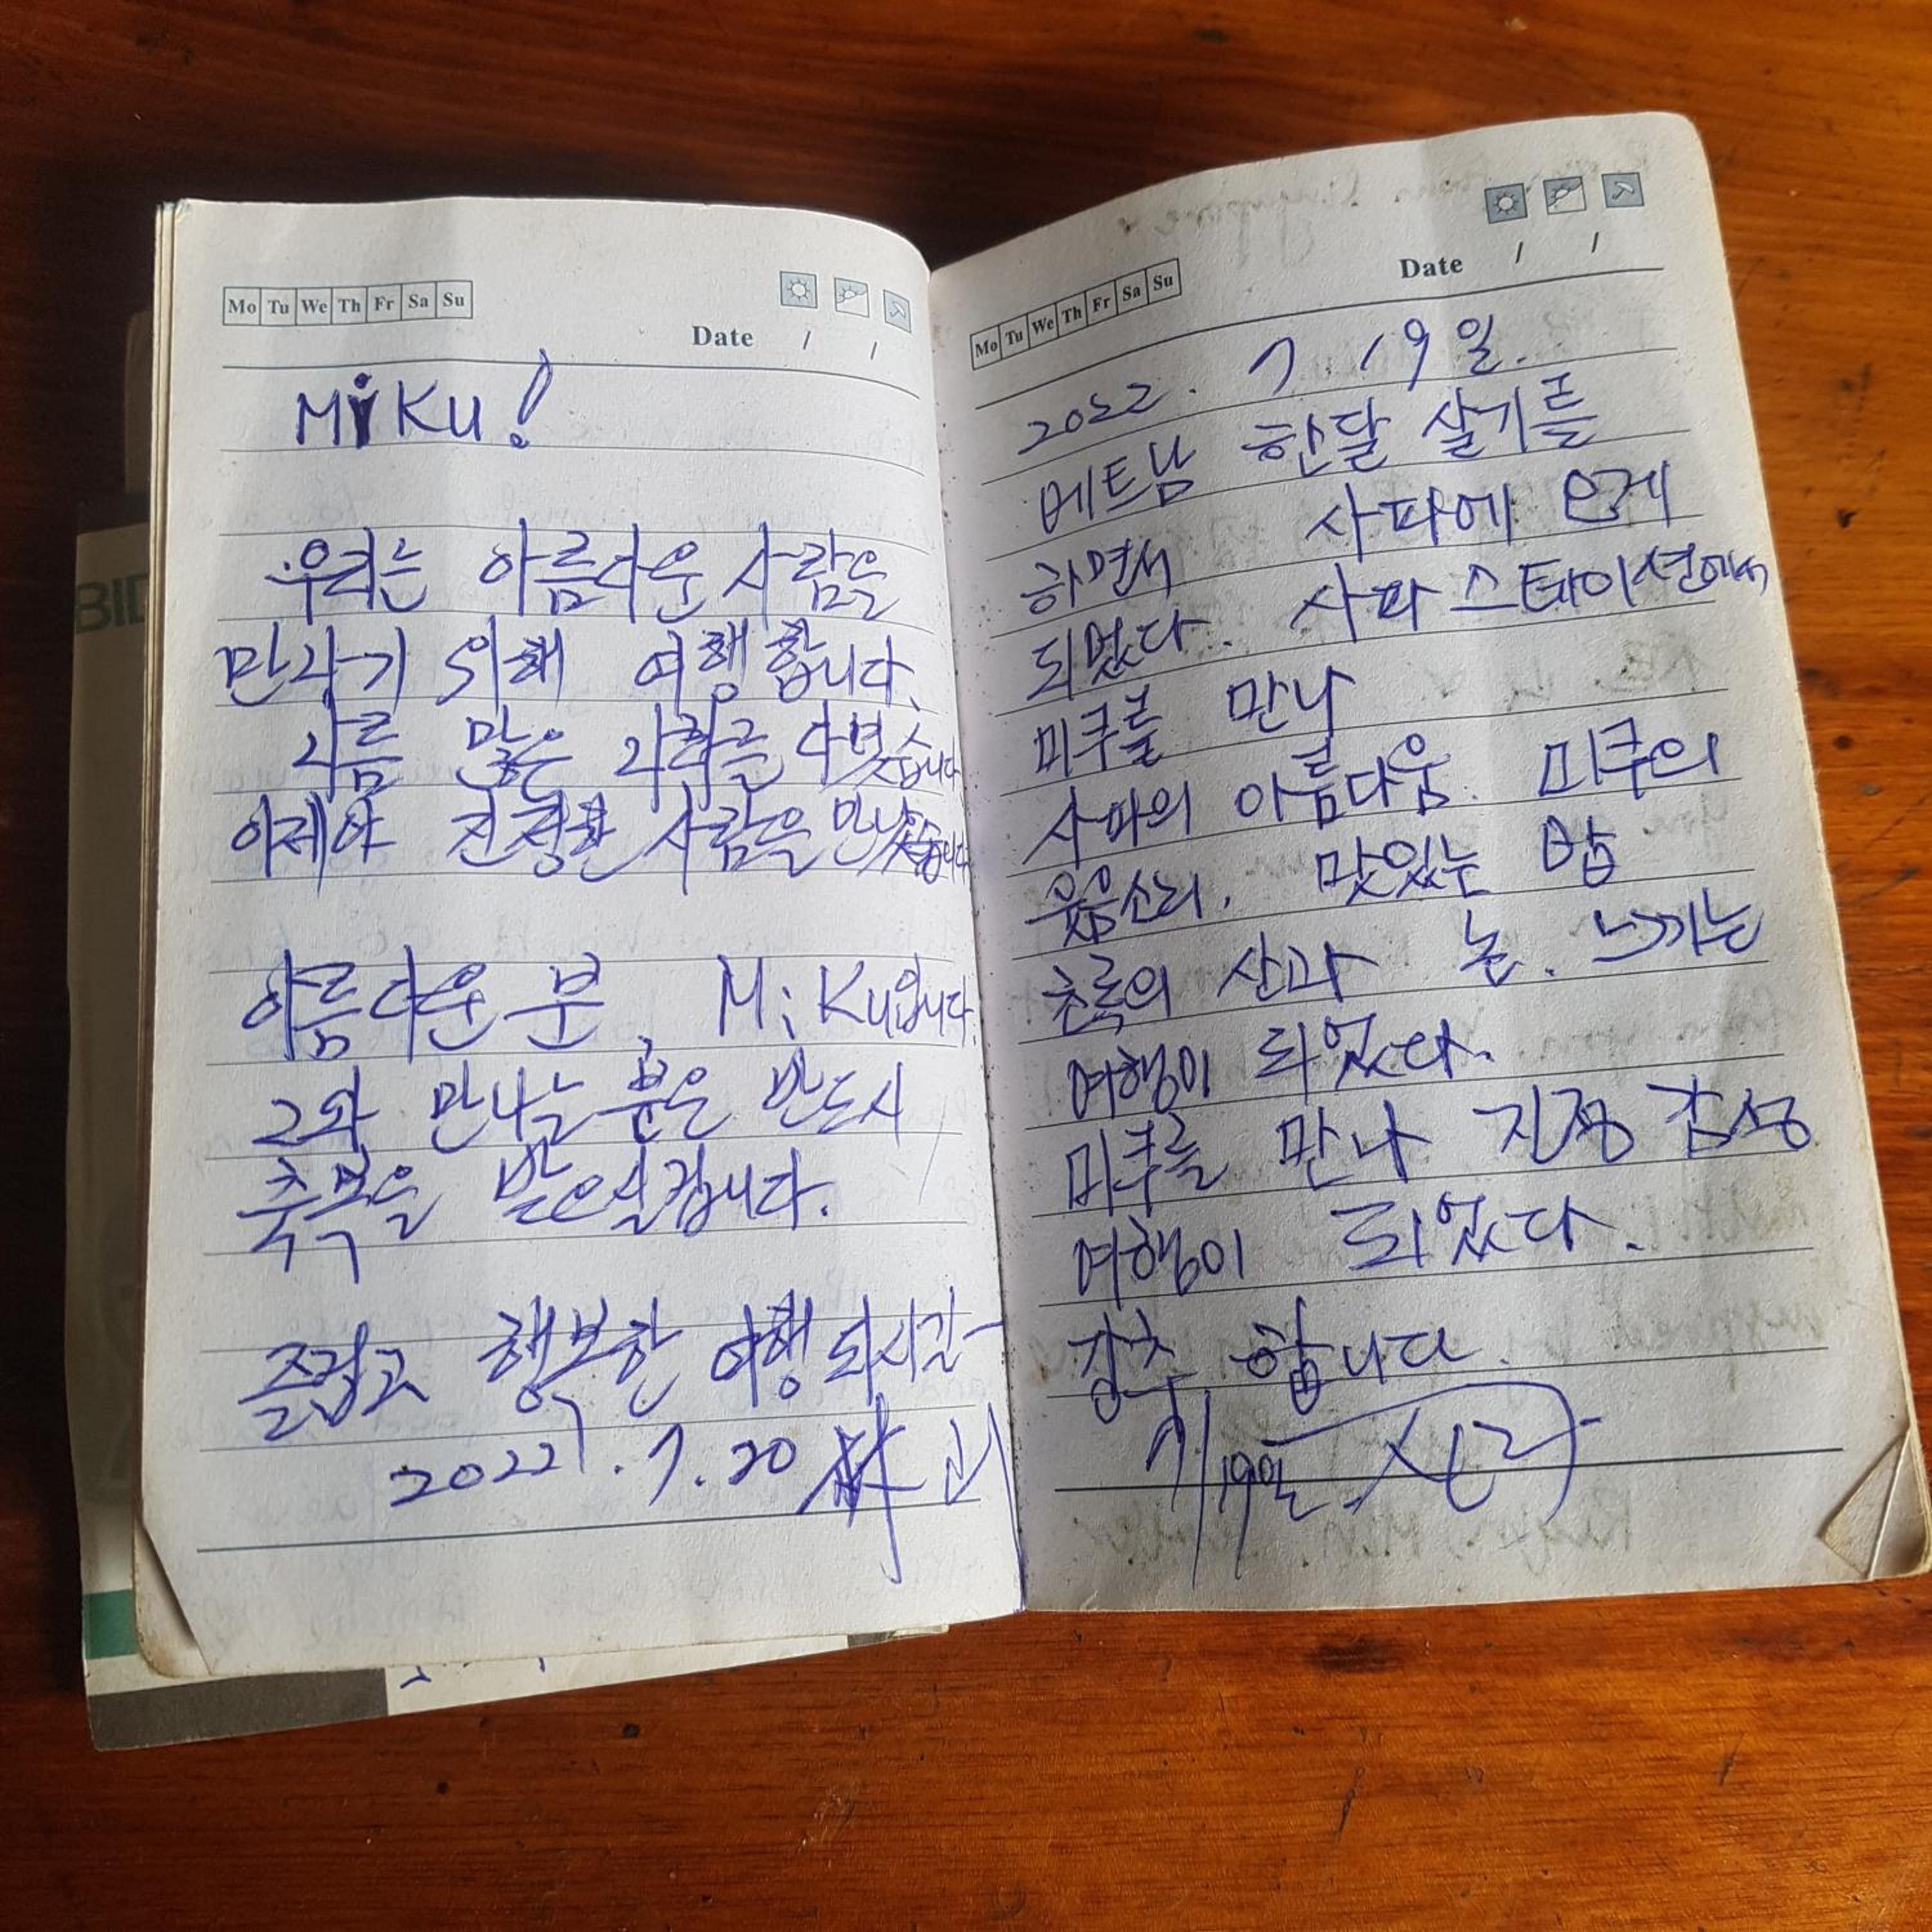 BID
Mo Tu We Th Fr Sa Su
Date / /
MiKu!
우리는 아름다운 사람을
만나기 위해 여행합니다.
나름 많은 다녔습니다
이제야 진정한 사람을 만났습니다
아름다운 분, MiKu입니다.
그와 만나는 분은 반드시
축복을 받으실겁니다.
즐겁고 행복한 여행 되시길-
2022. 7. 20
Mo Tu We Th Fr Sa Su
Date / /
2022. 7 19일.
베트남 한달 살기를
하면서 사파에 오게
되었다. 사파 스테이션에서
미쿠를 만나
사파의 아름다움. 미쿠의
웃음소리. 맛있는 밥
초록의 산과 논. 느끼는
여행이 되었다.
미쿠를 만나 진정 감성
여행이 되었다.
강추 합니다.
7/19일